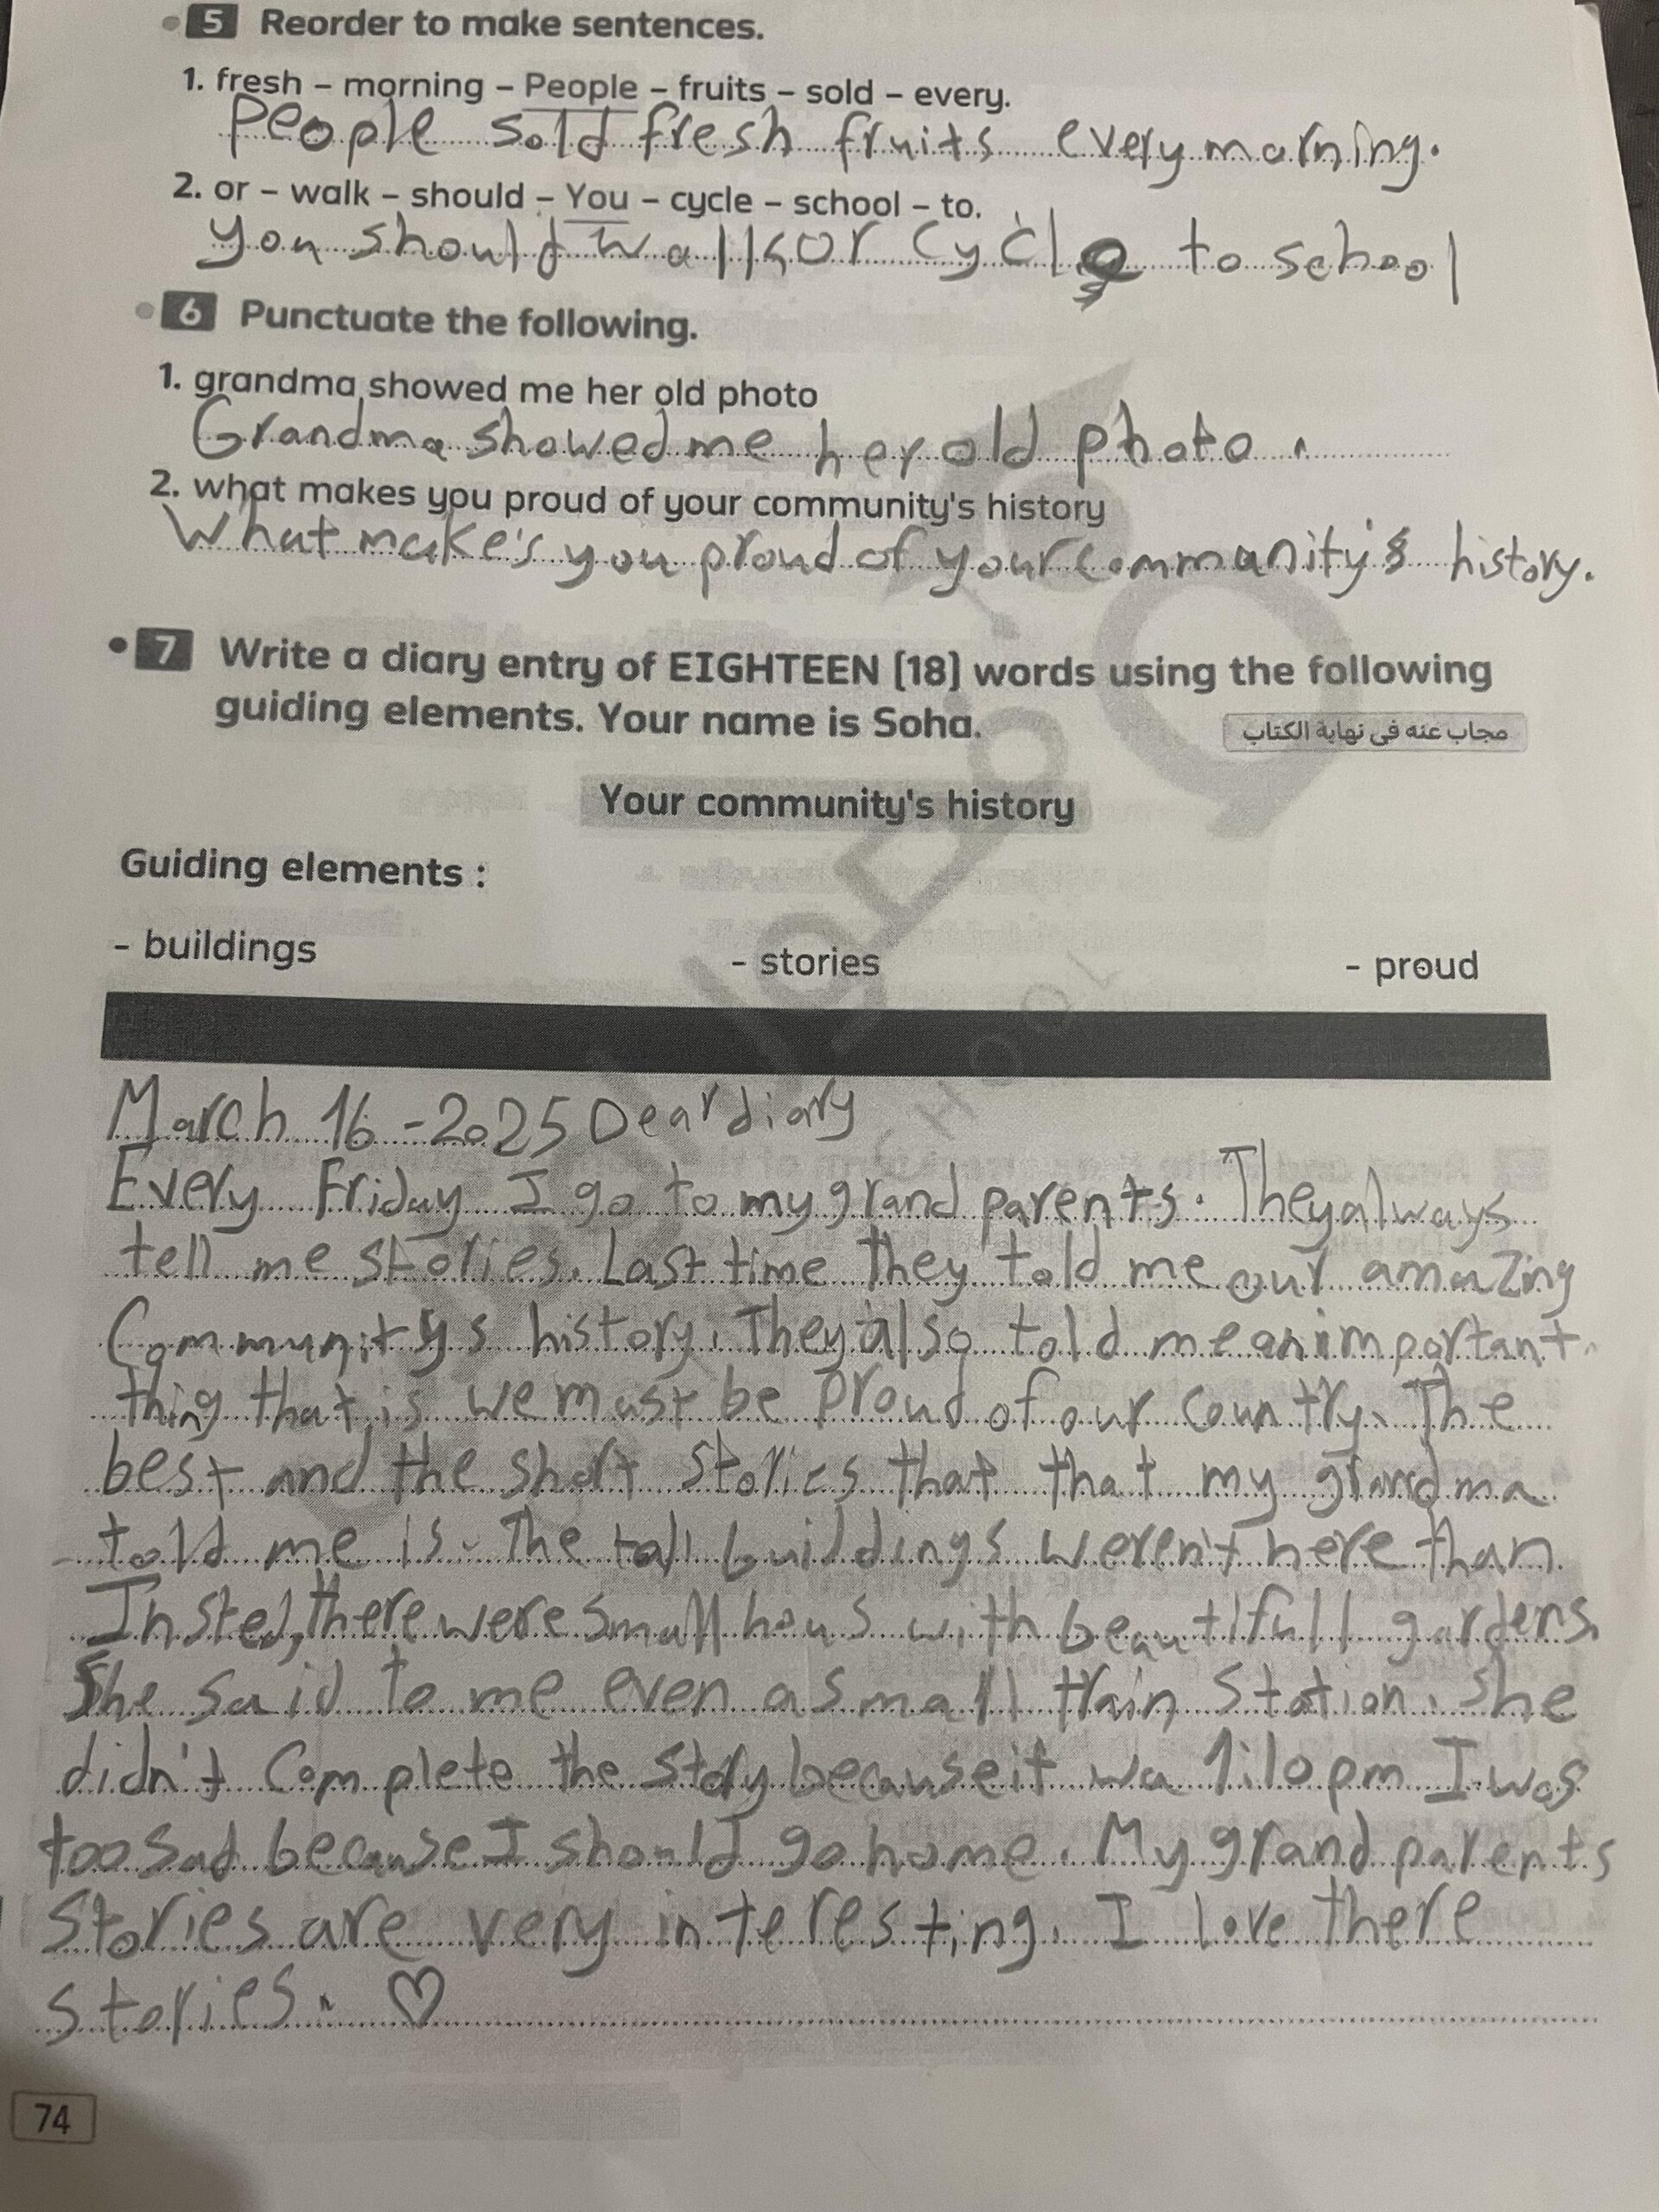 5 Reorder to make sentences.
1. fresh – morning – People – fruits – sold – every.
People sold fresh fruits every morning.
2. or – walk – should – You – cycle – school – to.
you should walk or cycle to school
6 Punctuate the following.
1. grandma showed me her old photo
Grandma showed me her old photo.
2. what makes you proud of your community's history
What make's you proud of your community's history.
7 Write a diary entry of EIGHTEEN (18) words using the following
guiding elements. Your name is Soha.
مجاب عنه فى نهاية الكتاب
Your community's history
Guiding elements :
- buildings - stories - proud
March 16 - 2025 Dear diary
Every Friday I go to my grand parents. They always
tell me stories. Last time they told me our amazing
Community's history. They also told me an important
thing that is we must be proud of our country. The
best and the short stories that that my grandma
told me is. The tall buildings weren't here than
Insted, there were small hous with beautifull gardens.
She said to me even a small train station. She
didn't complete the story because it wa 1:10 pm I was
too sad because I should go home. My grand parents
stories are very interesting. I love there
stories. ♡
SCHOOL
74